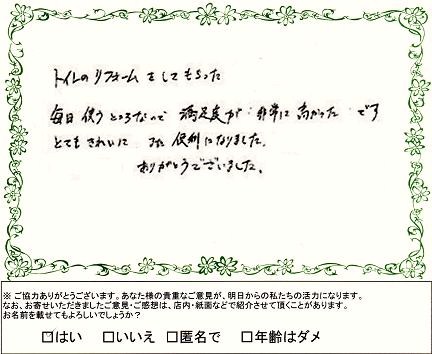 トイレのリフォームをしてもらった
毎日使うところなので 満足度が非常に高かったです
とてもきれいに また便利になりました。
ありがとうございました。
※ ご協力ありがとうございます。あなた様の貴重なご意見が、明日からの私たちの活力になります。
なお、お寄せいただきましたご意見・ご感想は、店内・紙面などで紹介させて頂くことがあります。
お名前を載せてもよろしいでしょうか?
☑はい □いいえ □匿名で □年齢はダメ